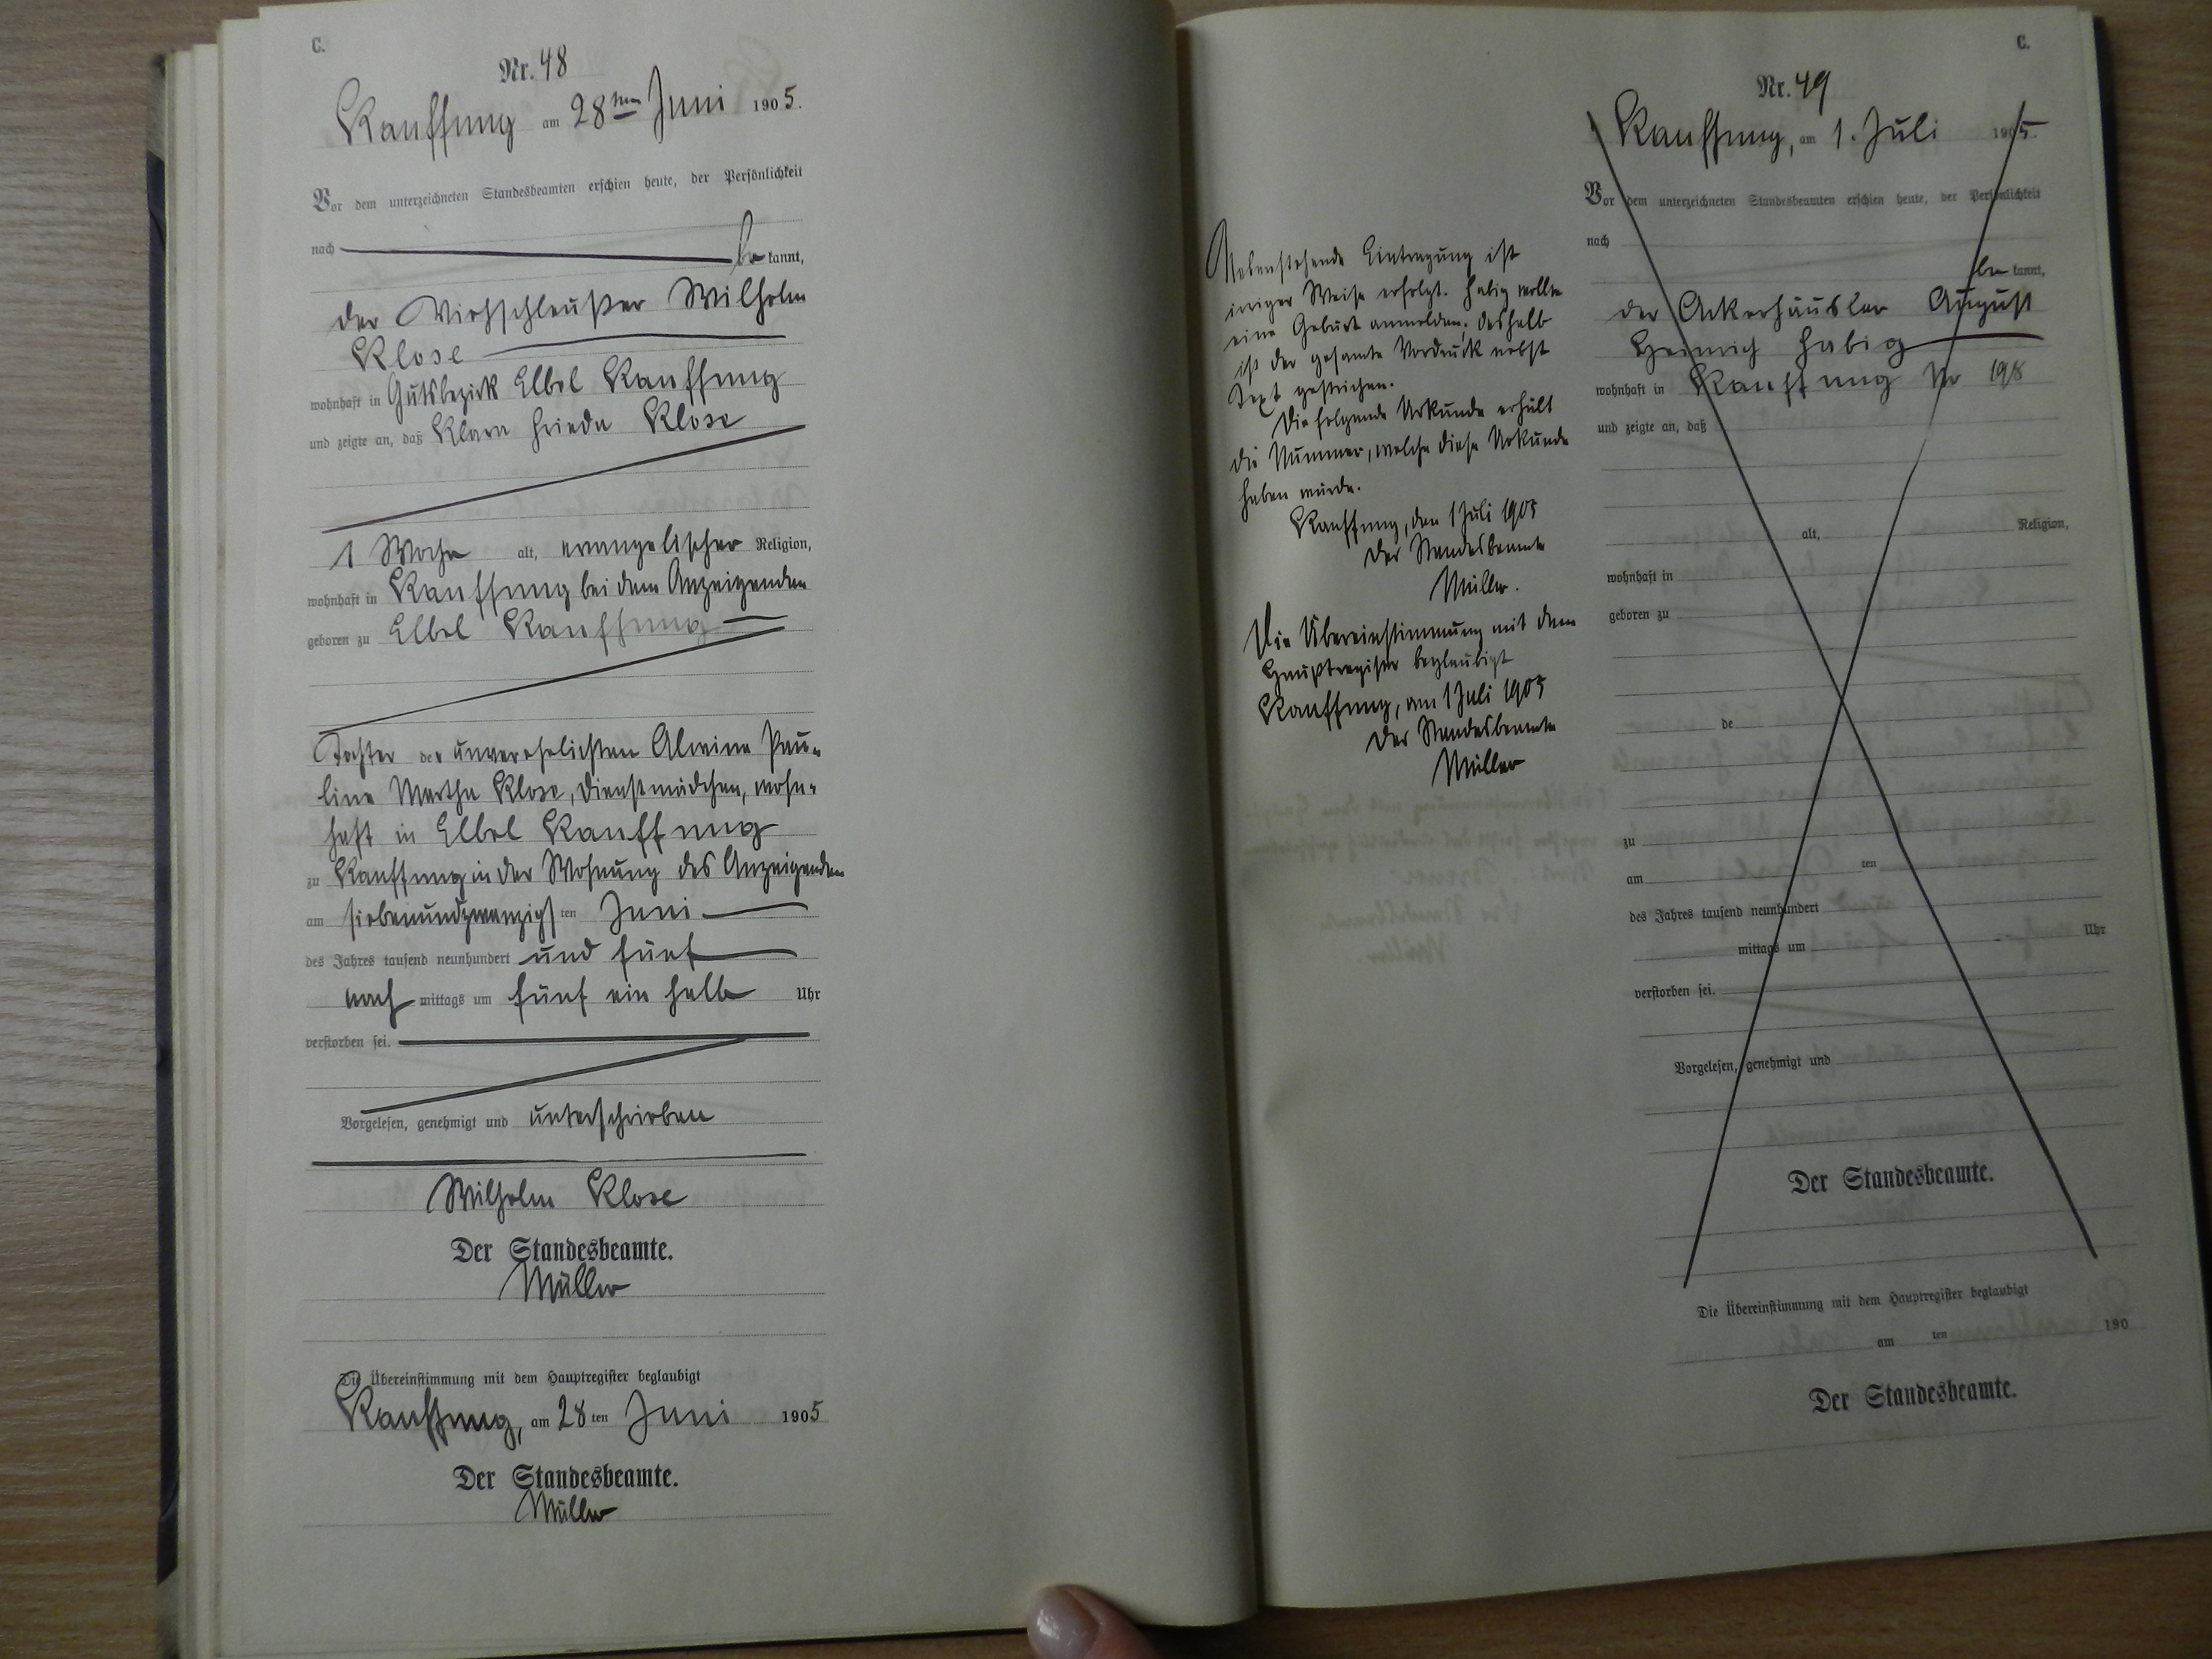 C.
Nr. 48
Kauffung am 28ten Juni 1905.
Vor dem unterzeichneten Standesbeamten erschien heute, der Persönlichkeit
nach be kannt,
der Viehschleußer Wilhelm
Klose
wohnhaft in Gutsbezirk Elbel Kauffung
und zeigte an, daß Klara Frieda Klose
1 Woche alt, evangelischer Religion,
wohnhaft in Kauffung bei dem Anzeigenden
geboren zu Elbel Kauffung
Tochter der unverehelichten Alwine Pau-
line Martha Klose, Dienstmädchen, wohn-
haft in Elbel Kauffung
zu Kauffung in der Wohnung des Anzeigenden
am siebenundzwanzigsten Juni
des Jahres tausend neunhundert und fünf
nach mittags um fünf ein halb Uhr
verstorben sei.
Vorgelesen, genehmigt und unterschrieben
Wilhelm Klose
Der Standesbeamte.
Müller
Die Übereinstimmung mit dem Hauptregister beglaubigt
Kauffung, am 28 ten Juni 1905
Der Standesbeamte.
Müller
C.
Nr. 49
Kauffung, am 1. Juli 1905.
Vor dem unterzeichneten Standesbeamten erschien heute, der Persönlichkeit
nach
be kannt,
der Ackerhäusler August
Heinrich Habig
wohnhaft in Kauffung Nr 198
und zeigte an, daß
alt, Religion,
wohnhaft in
geboren zu
de
zu
am ten
des Jahres tausend neunhundert
mittags um Uhr
verstorben sei.
Vorgelesen, genehmigt und
Der Standesbeamte.
Die Übereinstimmung mit dem Hauptregister beglaubigt
am ten 190
Der Standesbeamte.
Nebenstehende Eintragung ist
irriger Weise erfolgt. Habig wollte
eine Geburt anmelden; deshalb
ist der gesamte Vordruck nebst
Text gestrichen.
Die folgende Urkunde erhält
die Nummer, welche diese Urkunde
haben würde.
Kauffung, den 1 Juli 1905
Der Standesbeamte
Müller.
Die Übereinstimmung mit dem
Hauptregister beglaubigt
Kauffung, am 1 Juli 1905
Der Standesbeamte
Müller